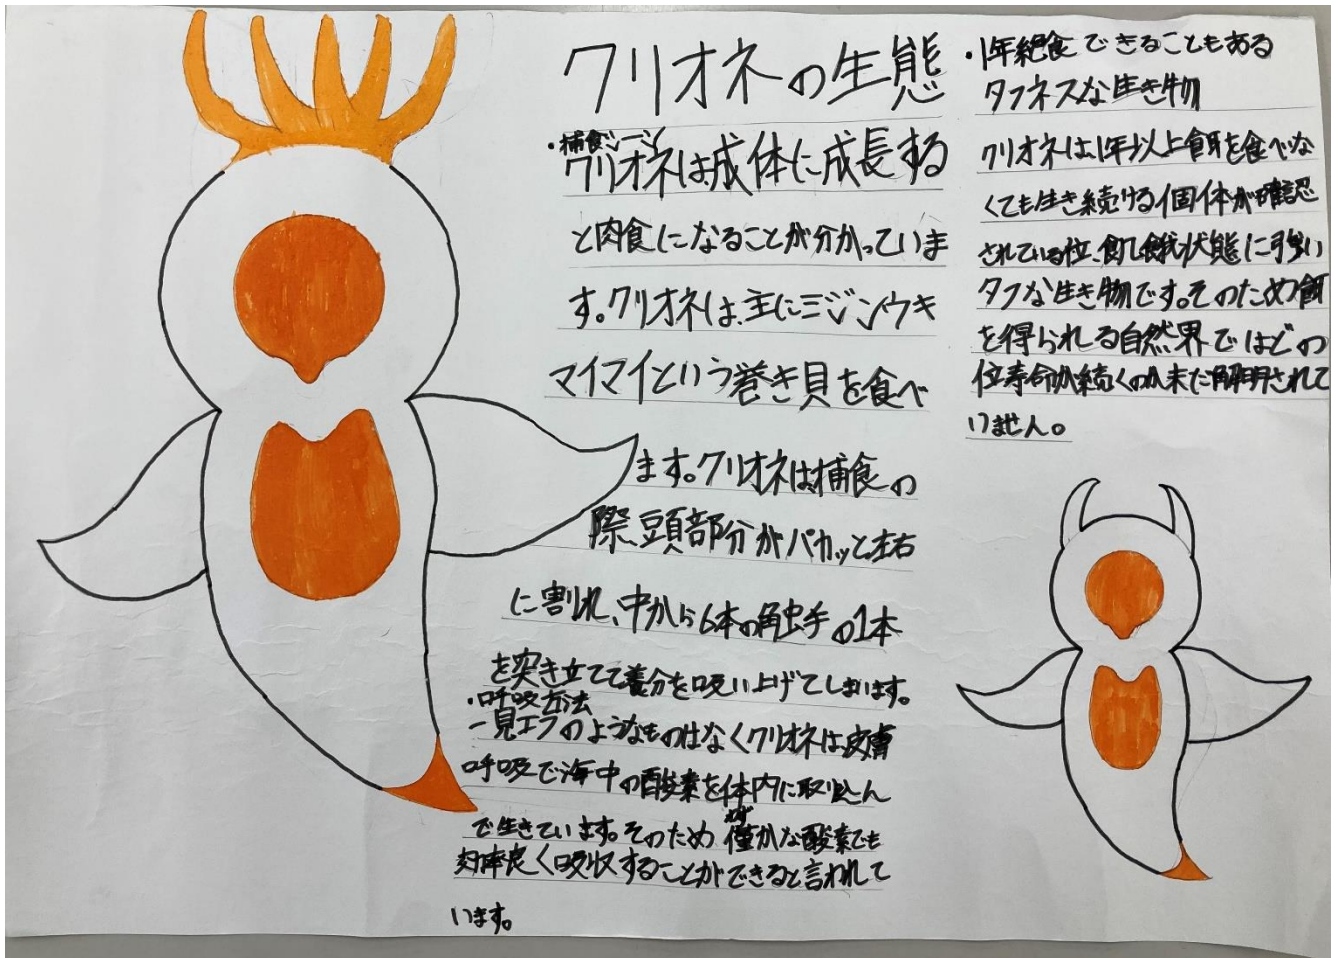 クリオネの生態
・捕食シーン
クリオネは成体に成長する
と肉食になることが分かっていま
す。クリオネは、主にミジンウキ
マイマイという巻き貝を食べ
ます。クリオネは、捕食の
際、頭部分がパカッと左右
に割れ、中から6本の触手の1本
を突き立てて養分を吸い上げてしまいます。
・呼吸方法
一見エラのようなものはなくクリオネは皮膚
呼吸で海中の酸素を体内に取り込ん
で生きています。そのため僅かな酸素でも
わず
効率良く吸収することができると言われて
います。
・1年絶食できることもある
タフネスな生き物
クリオネは、1年以上餌を食べな
くても生き続ける個体が確認
されている位、飢餓状態に強い
タフな生き物です。そのため餌
を得られる自然界ではどの
位寿命が続くのか未だ解明されて
いません。